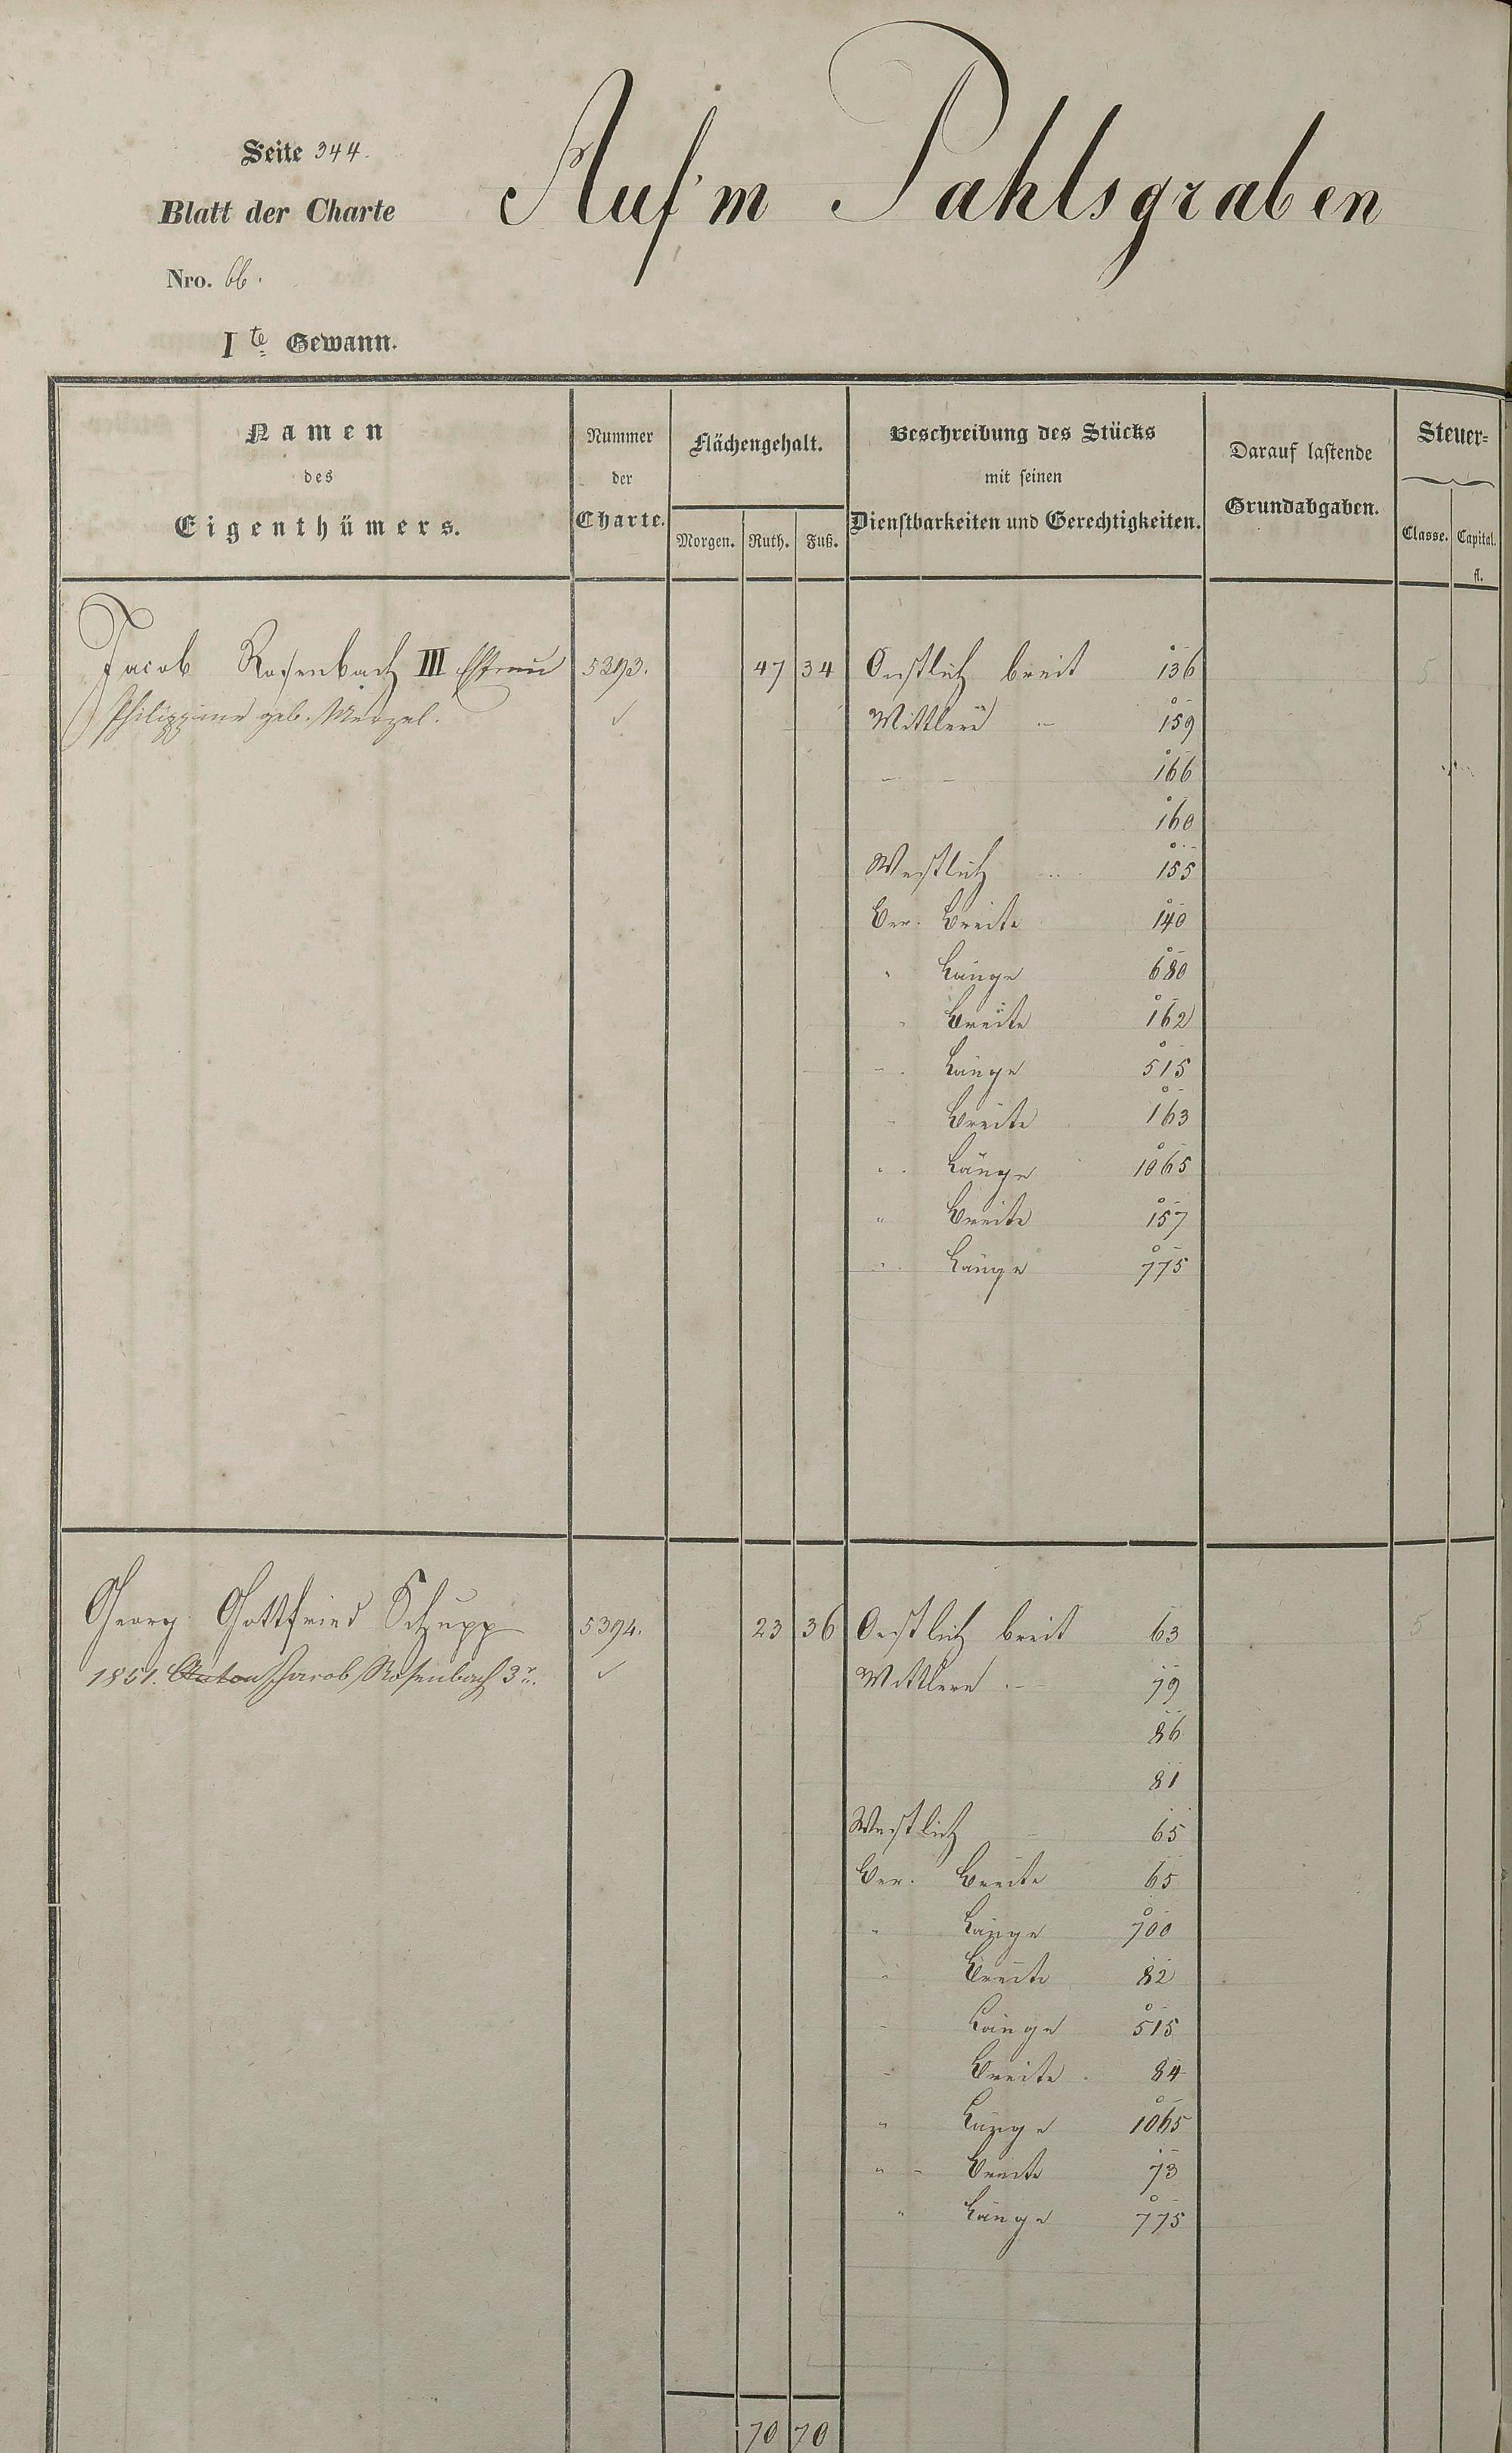 Seite 344.
Auf'm Pahlsgraben
Blatt der Charte
Nro. 66.
Ite Gewann.
Namen des Eigenthümers.
Nummer der Charte.
Flächengehalt.
Morgen. Ruth. Fuß.
Beschreibung des Stücks mit seinen Dienstbarkeiten und Gerechtigkeiten.
Darauf lastende Grundabgaben.
Steuer=
Classe. Capital.
fl.
Jacob Rosenbach III 5393. 47 34 Oestlich breit 136 5
Philippine geb. Menzel. ✓ Mittlere - 159
- - 166
160
Westlich 155
Ber. Breite 140
" Länge 680
" Breite 162
" Länge 515
" Breite 163
" Länge 1065
" Breite 157
" Länge 775
Georg Gottfried Schupp 5394. 23 36 Oestlich breit 63 5
1851. Anton Jacob Rosenbach 3r. ✓ Mittlere - 79
86
81
Westlich 65
Ber. Breite 65
" Länge 700
" Breite 82
" Länge 515
" Breite 84
" Länge 1065
" Breite 73
" Länge 775
70 70